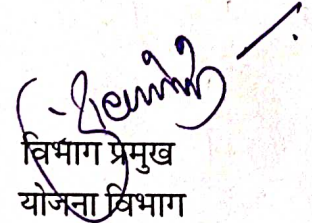 विभाग प्रमुख
योजना विभाग